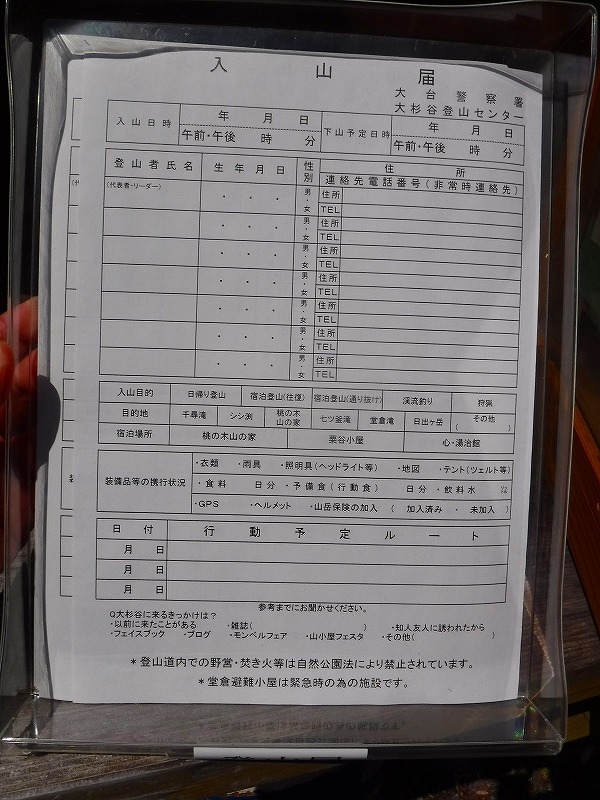 入山届
大台警察署
大杉谷登山センター
入山日時 年 月 日 下山予定日時 年 月 日
午前・午後 時 分 午前・午後 時 分
登山者氏名 生年月日 性別 住所
連絡先電話番号(非常時連絡先)
(代表者・リーダー) ・ ・ ・ 男・女 住所
TEL
・ ・ ・ 男・女 住所
TEL
・ ・ ・ 男・女 住所
TEL
・ ・ ・ 男・女 住所
TEL
・ ・ ・ 男・女 住所
TEL
・ ・ ・ 男・女 住所
TEL
・ ・ ・ 男・女 住所
TEL
入山目的 日帰り登山 宿泊登山(往復) 宿泊登山(通り抜け) 渓流釣り 狩猟
目的地 千尋滝 シシ渕 桃の木山の家 七ツ釜滝 堂倉滝 日出ヶ岳 その他( )
宿泊場所 桃の木山の家 粟谷小屋 心・湯治館
装備品等の携行状況 ・衣類 ・雨具 ・照明具(ヘッドライト等) ・地図 ・テント(ツェルト等)
・食料 日分 ・予備食(行動食) 日分 ・飲料水 ㍑
・GPS ・ヘルメット ・山岳保険の加入 ( 加入済み ・ 未加入 )
日付 行動予定ルート
月 日
月 日
月 日
参考までにお聞かせください。
Q大杉谷に来るきっかけは?
・以前に来たことがある ・雑誌( ) ・知人友人に誘われたから
・フェイスブック ・ブログ ・モンベルフェア ・山小屋フェスタ ・その他( )
*登山道内での野営・焚き火等は自然公園法により禁止されています。
*堂倉避難小屋は緊急時の為の施設です。